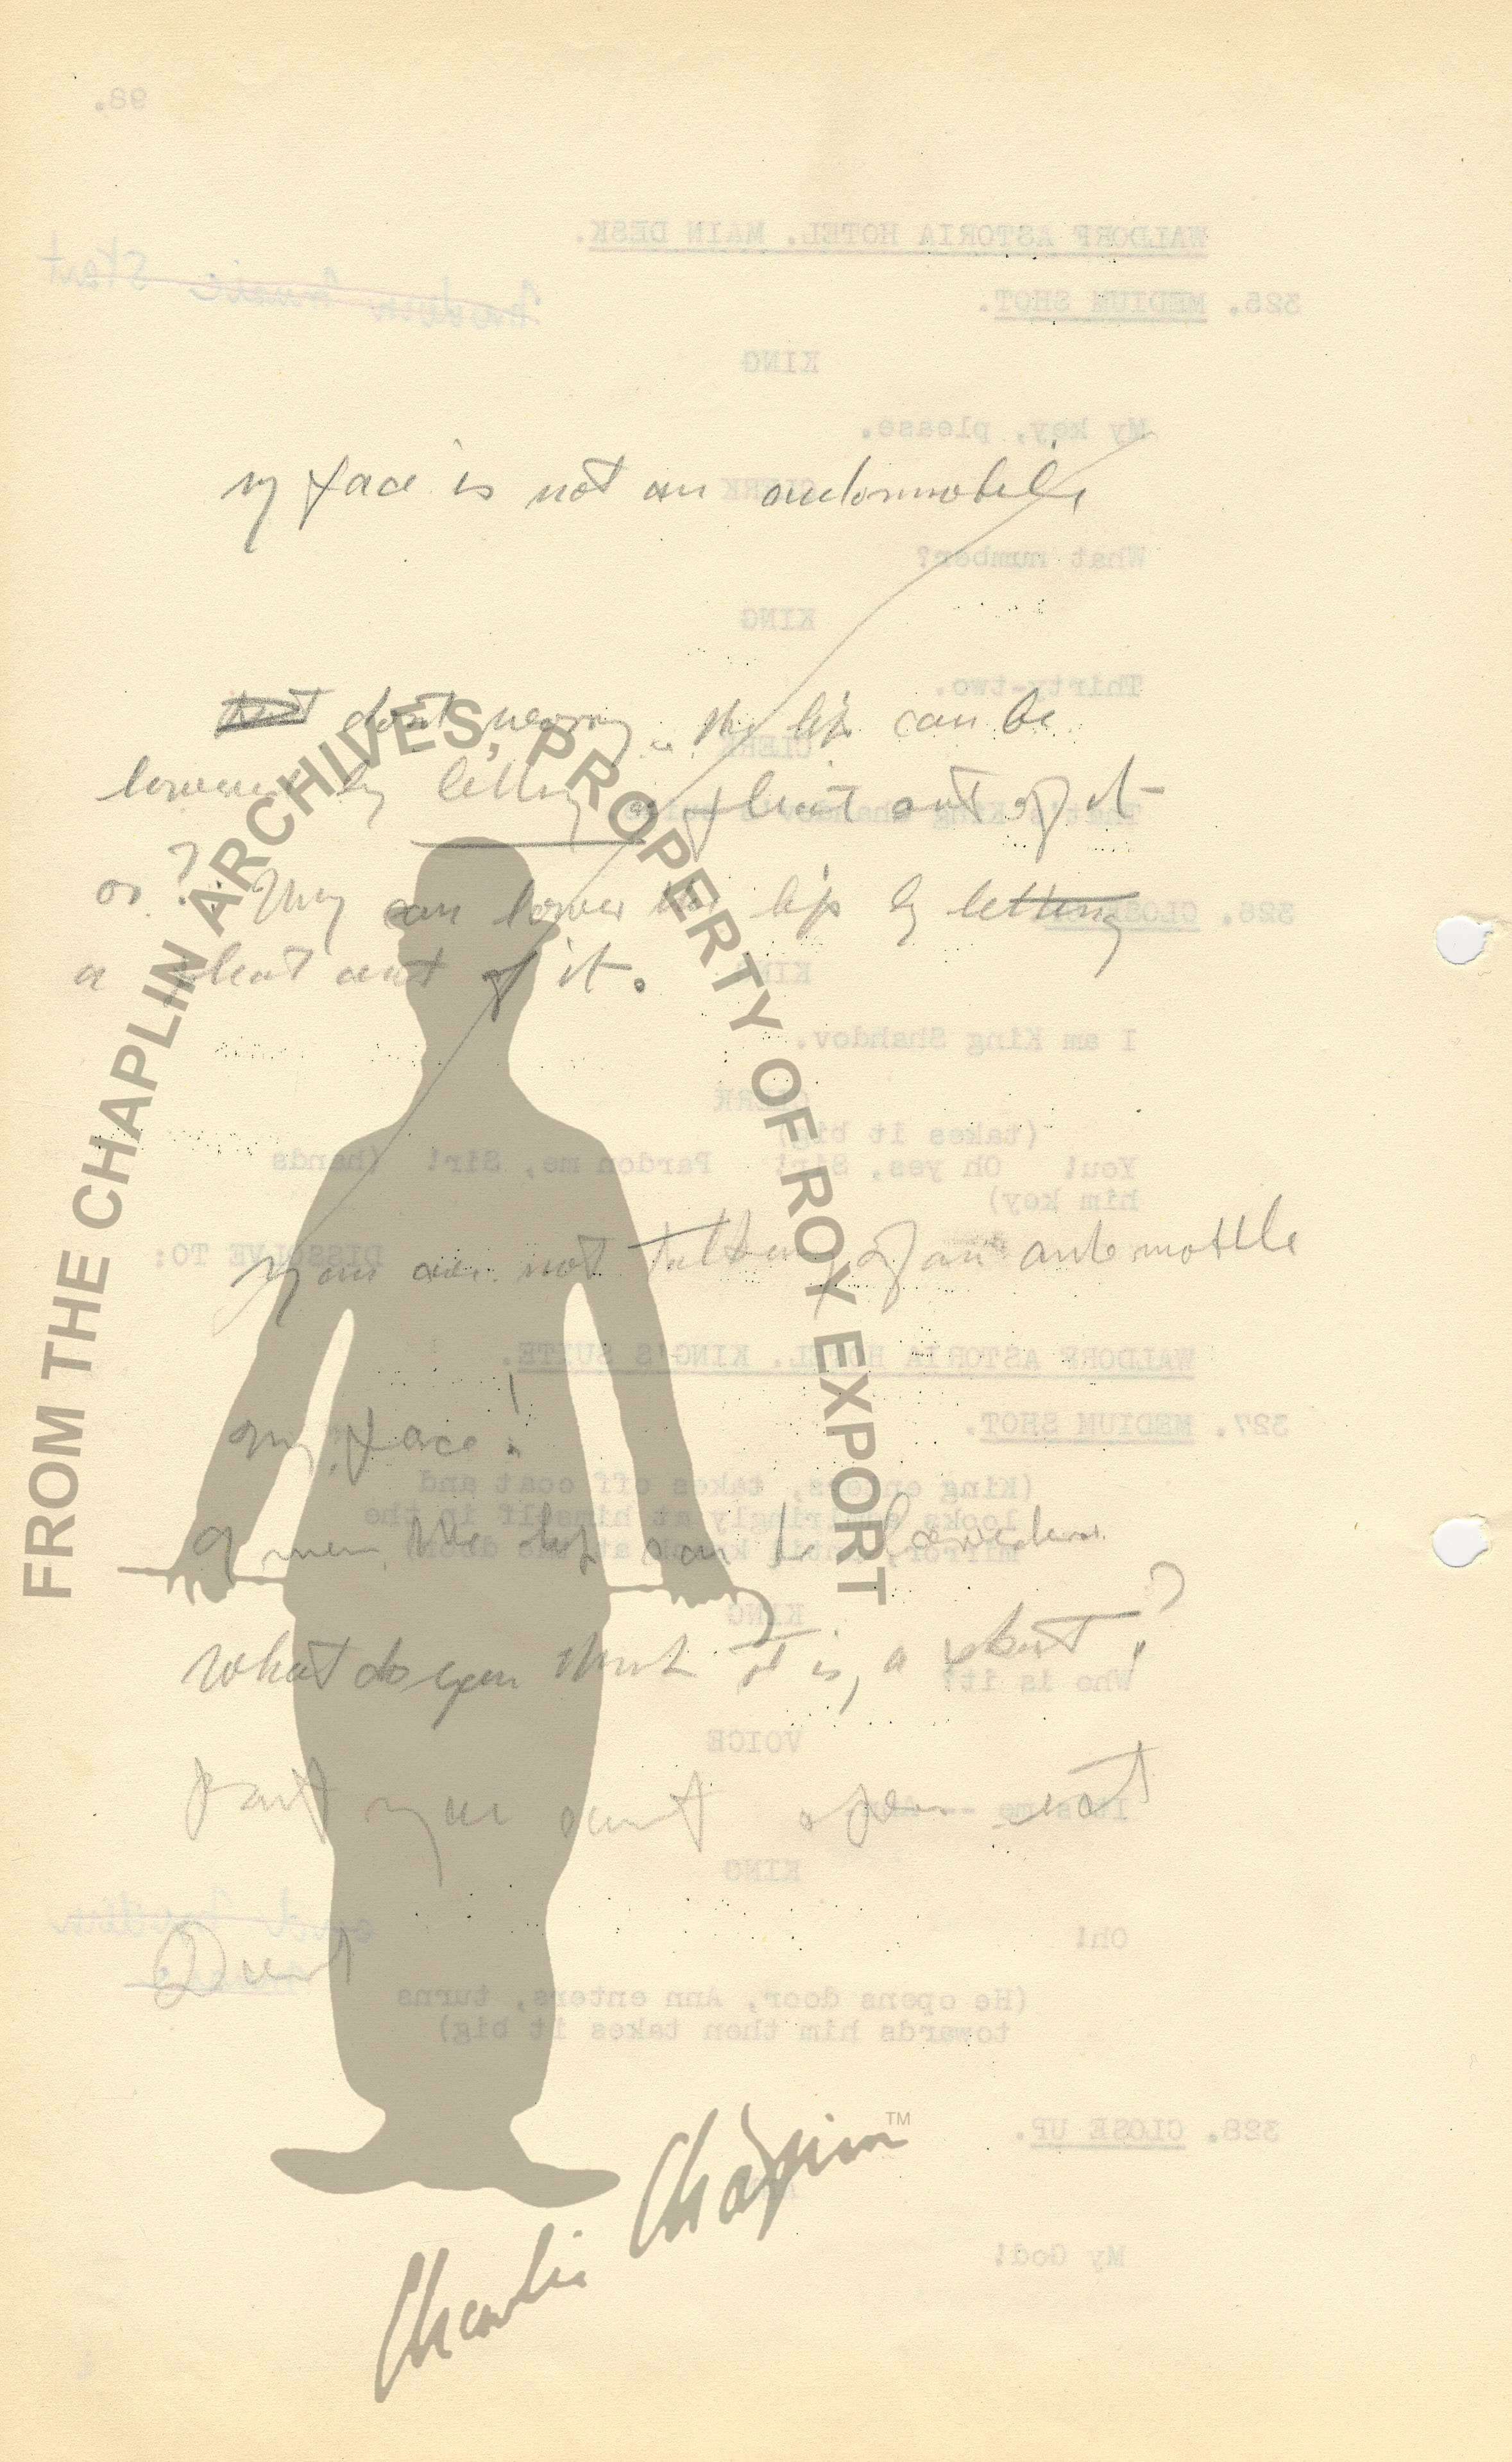 my face is not an automobile
don't worry. the lip can be
by letting a pleat out of it
or? They can lower the lip by letting
a pleat out of it.
your are not talking of an automobile
my face!
I mean the lip can be lowered
what do you think it is, a skirt?
FROM THE CHAPLIN ARCHIVES, PROPERTY OF ROY EXPORT
Charlie Chaplin™
98.
WALDORF ASTORIA HOTEL. MAIN DESK.
325. MEDIUM SHOT.
KING
My key, please.
CLERK
What number?
KING
Thirty-two.
CLERK
That's King Shahdov's
326. CLOSE
KING
I am King Shahdov.
CLERK
(takes it big)
You! Oh yes, Sir! Pardon me, Sir! (hands
him key)
DISSOLVE TO:
WALDORF ASTORIA HOTEL. KING'S SUITE.
327. MEDIUM SHOT.
(King enters, takes off coat and
looks admiringly at himself in the
mirror, knock at the door)
KING
Who is it?
VOICE
It's me -- Ann
KING
Oh!
(He opens door, Ann enters, turns
towards him then takes it big)
328. CLOSE UP.
My God!